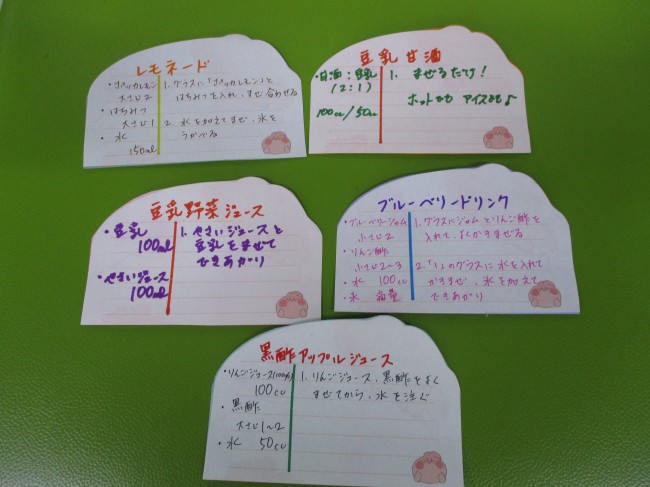 レモネード
・ポッカレモン
大さじ2
・はちみつ
大さじ1
・水
150ml
1. グラスに「ポッカレモン」と
はちみつを入れ、まぜ合わせる
2. 水を加えてまぜ、氷を
うかべる
豆乳甘酒
・甘酒:豆乳
(2:1)
100cc/50cc
1. まぜるだけ!
ホットでも アイスでも♪
豆乳野菜ジュース
・豆乳
100ml
・やさいジュース
100ml
1. やさいジュースと
豆乳をまぜて
できあがり
ブルーベリードリンク
・ブルーベリージャム
小さじ2
・りんご酢
小さじ2~3
・水 100cc
・氷 適量
1. グラスにジャムとりんご酢を
入れて、よくかきまぜる
2. 「1」のグラスに水を入れて
かきまぜ、氷を加えて
できあがり
黒酢アップルジュース
・りんごジュース(100%)
100cc
・黒酢
大さじ1~2
・水 50cc
1. りんごジュース、黒酢をよく
まぜてから、水を注ぐ